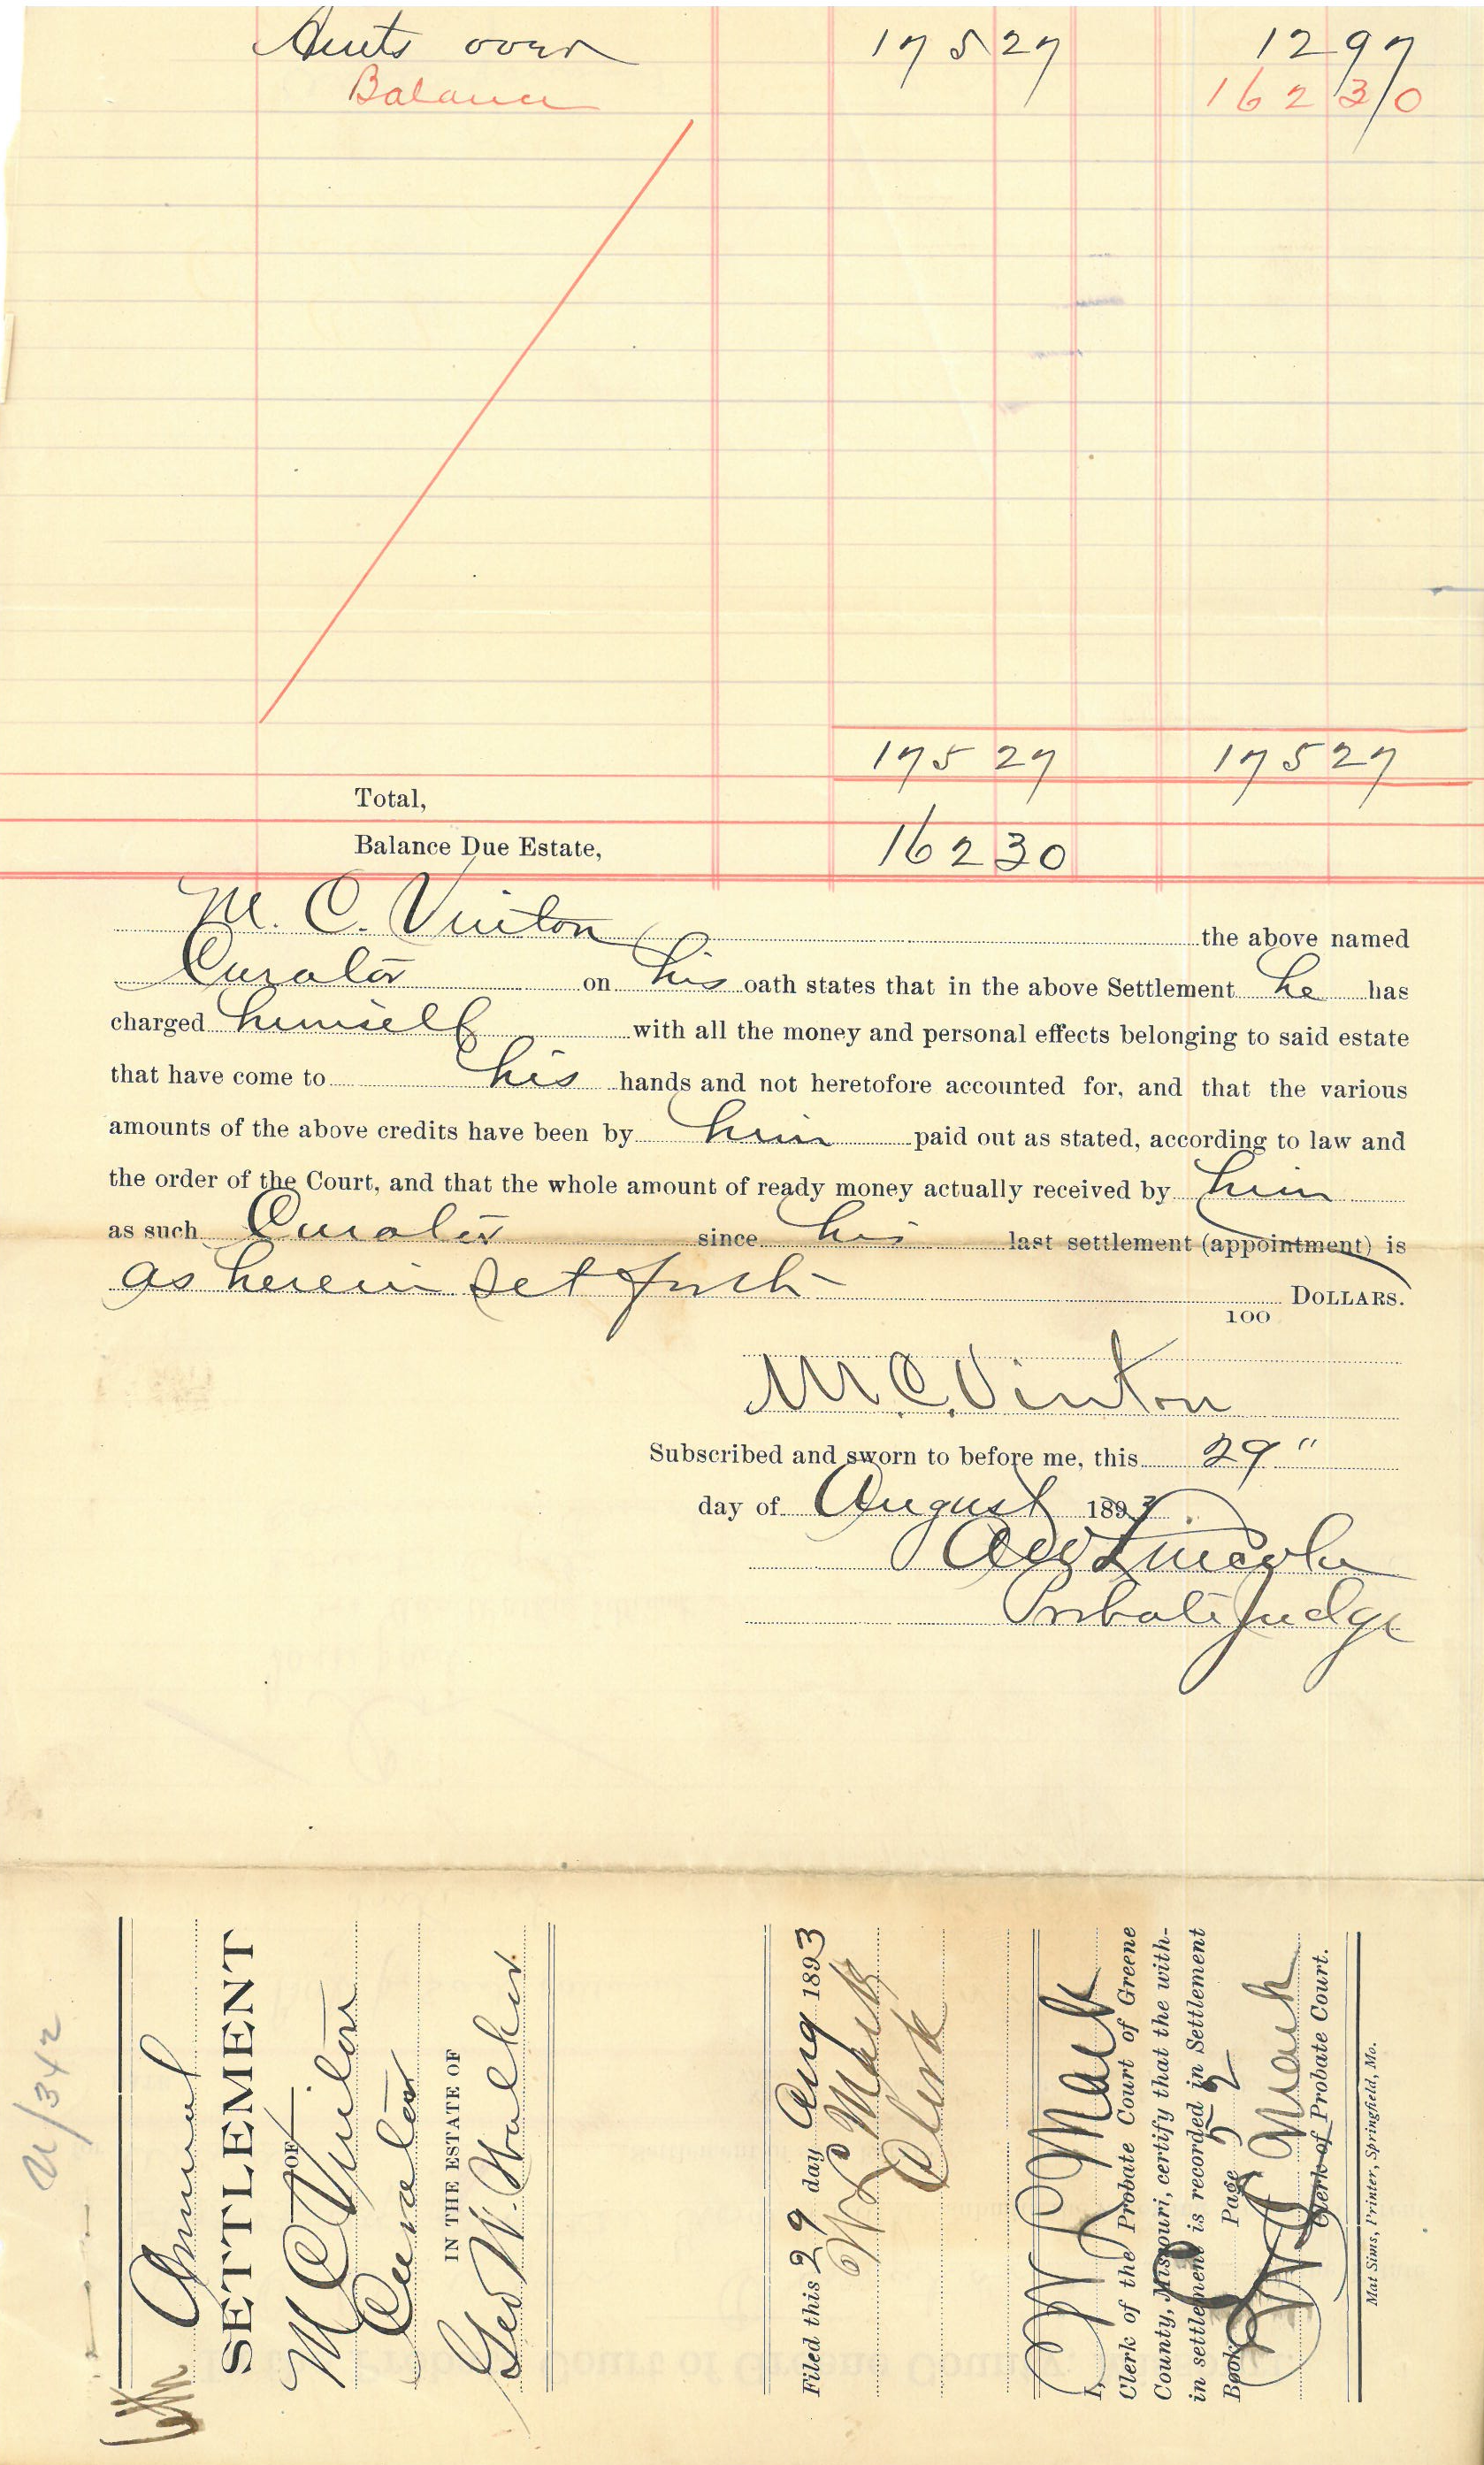 Amts over 175 27 12 97
Balance 162 30
175 27 175 27
Total,
Balance Due Estate, 162 30
M. C. Vinton the above named
Curator on his oath states that in the above Settlement he has
charged himself with all the money and personal effects belonging to said estate
that have come to his hands and not heretofore accounted for, and that the various
amounts of the above credits have been by him paid out as stated, according to law and
the order of the Court, and that the whole amount of ready money actually received by him
as such Curator since his last settlement (appointment) is
as herein set forth DOLLARS.
100
M. C. Vinton
Subscribed and sworn to before me, this 29"
day of August 1893.
A W Lincoln
Probate Judge
6th Annual
SETTLEMENT
OF
M C Vinton
Curator
IN THE ESTATE OF
Geo W. Walker
Filed this 29 day Aug 1893
W L Mack
Clerk
I, W L Mack
Clerk of the Probate Court of Greene
County, Missouri, certify that the with-
in settlement is recorded in Settlement
Book Page 552
W L Mack
Clerk of Probate Court.
Mat Sims, Printer, Springfield, Mo.